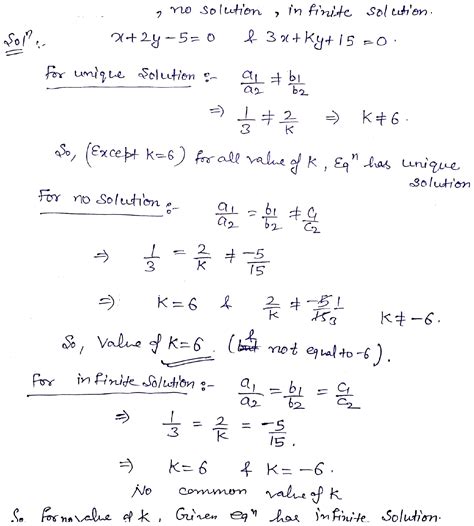 , no solution, infinite solution.
Solⁿ:- x+2y-5=0 & 3x+Ky+15=0.
For unique solution:- a1/a2 ≠ b1/b2
⇒ 1/3 ≠ 2/K ⇒ K≠6.
So, (Except K=6) for all value of K, Eqⁿ has unique
solution
For no solution:- a1/a2 = b1/b2 ≠ c1/c2
⇒ 1/3 = 2/K ≠ -5/15
⇒ K=6 & 2/K ≠ -5 1/15 3 K≠-6.
So, Value of K=6. (& not equal to -6).
For infinite solution:- a1/a2 = b1/b2 = c1/c2
⇒ 1/3 = 2/K = -5/15.
⇒ K=6 & K=-6.
No common value of K
So for no value of K, Given eqⁿ has infinite solution.